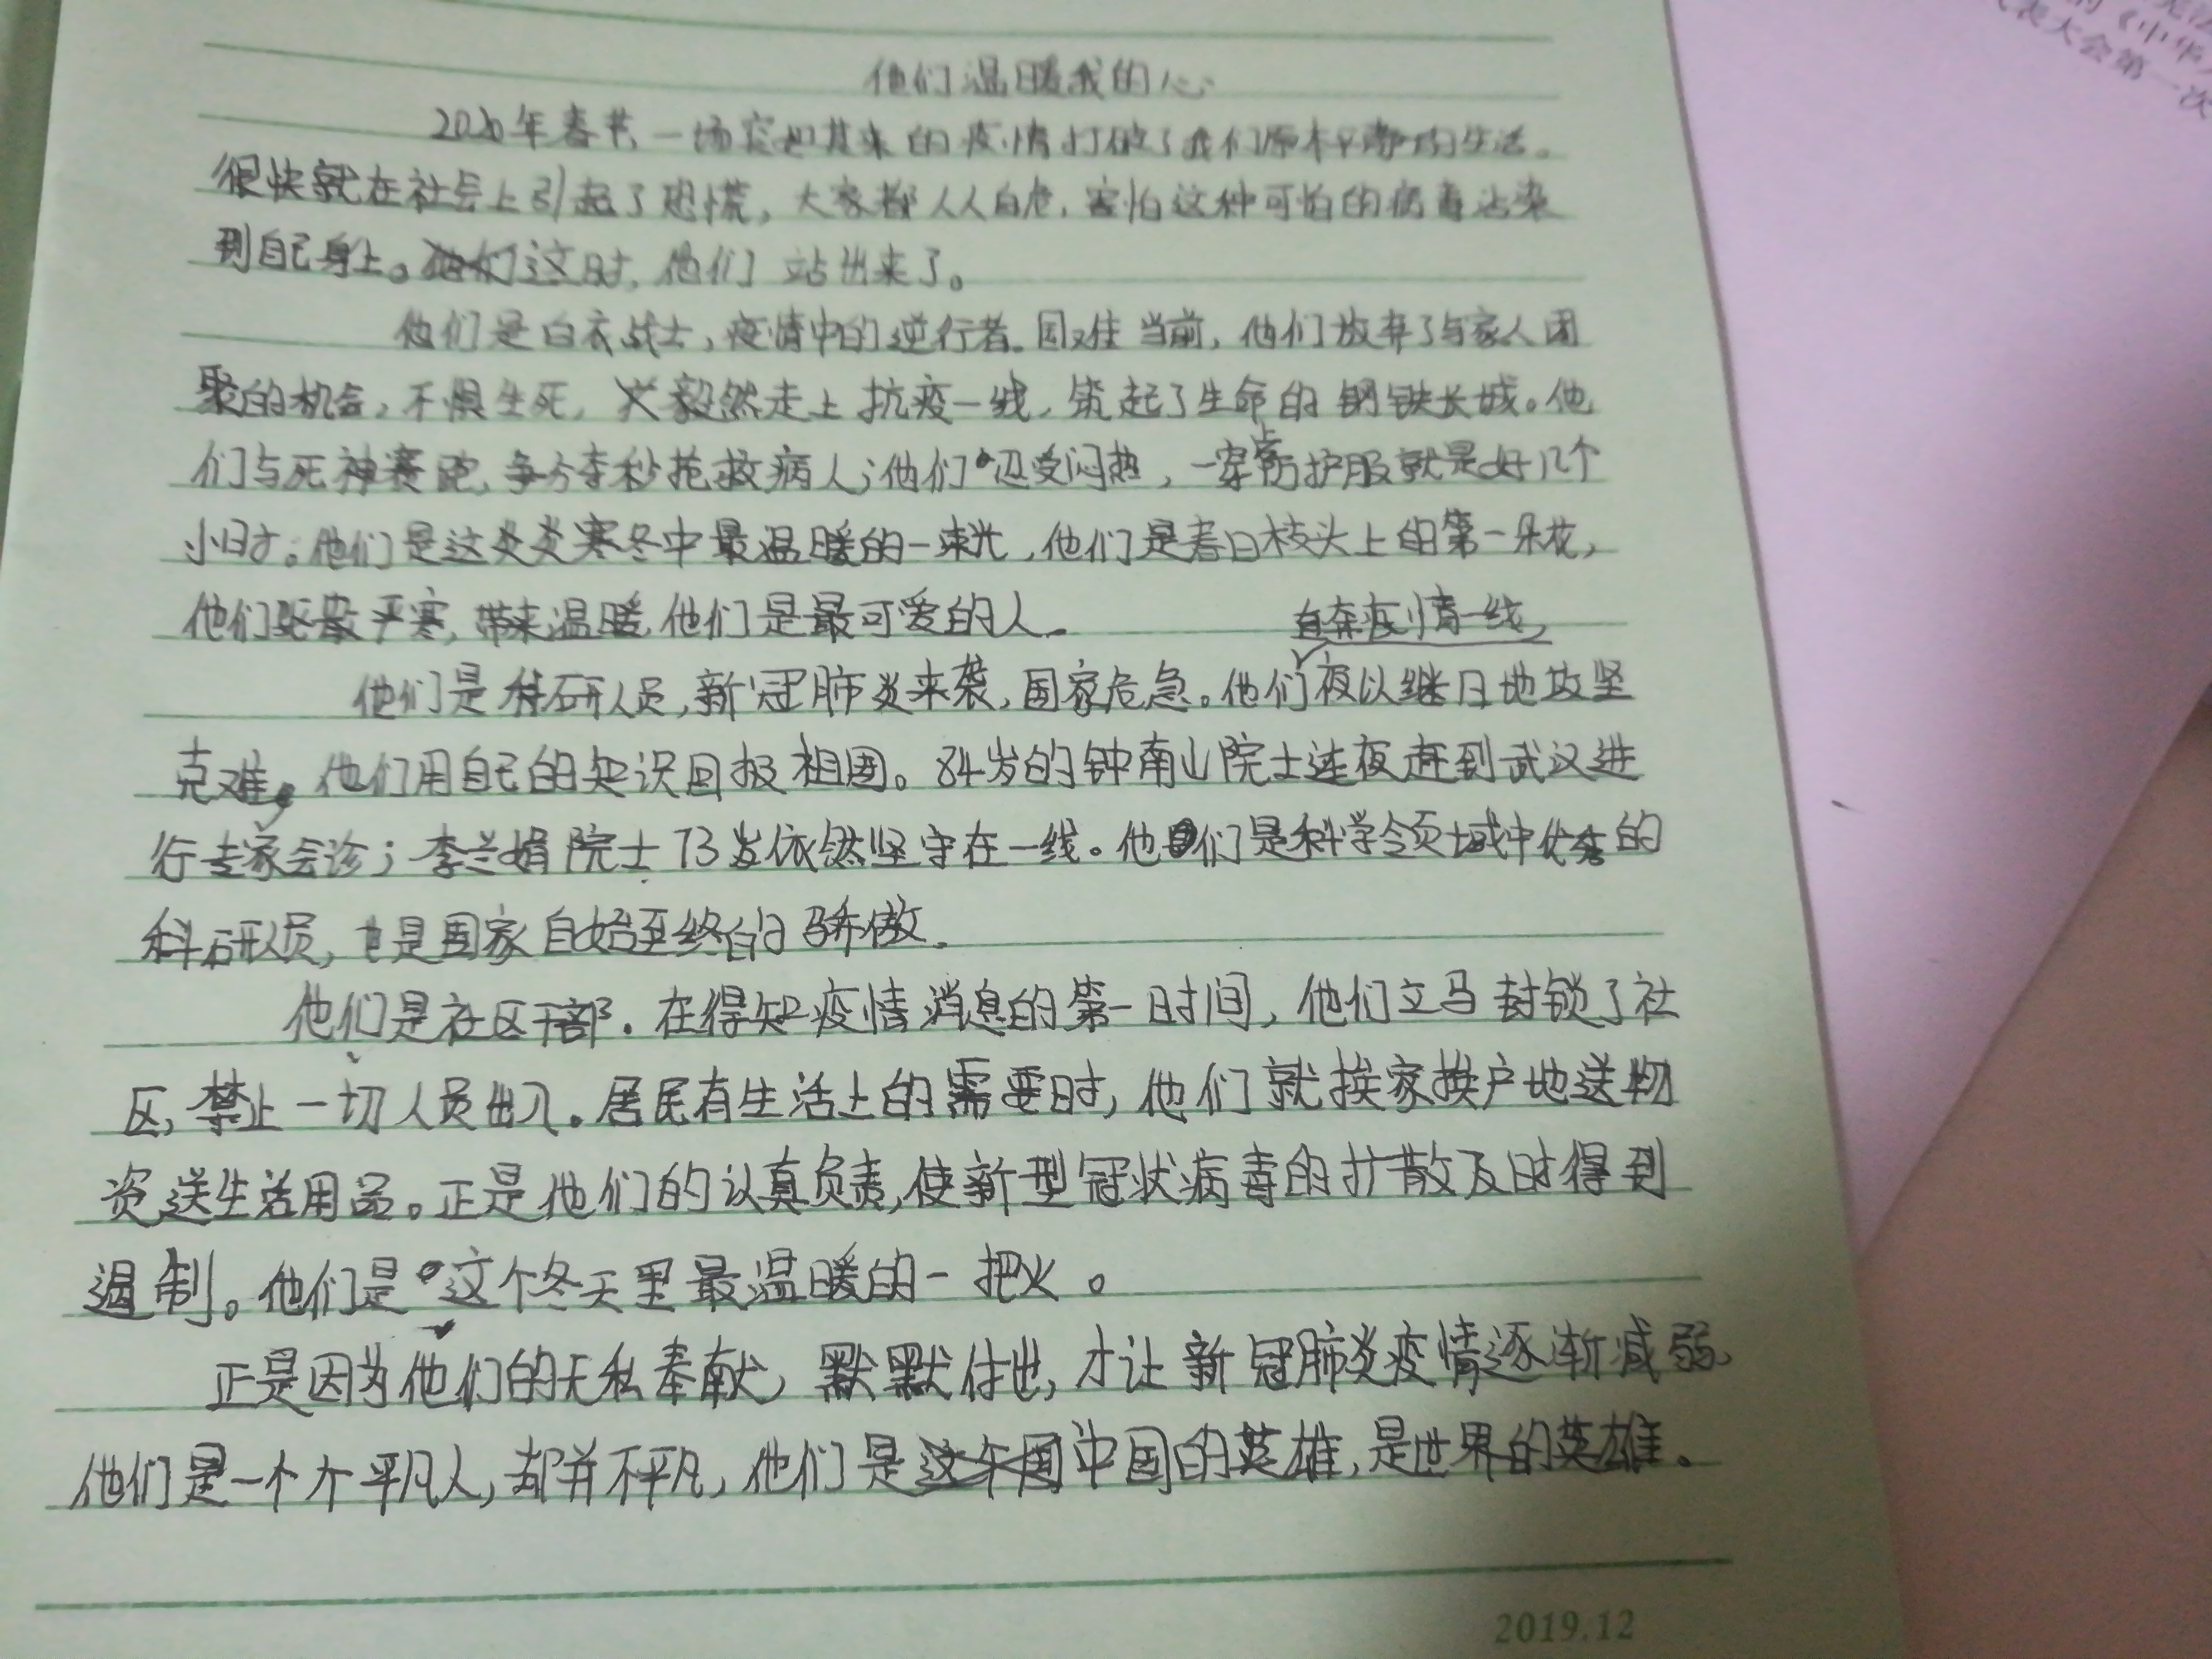 他们温暖我的心
2020年春节,一场突如其来的疫情打破了我们原本平静的生活。
很快就在社会上引起了恐慌,大家都人人自危,害怕这种可怕的病毒沾染
到自己身上。这时,他们站出来了。
他们是白衣战士,疫情中的逆行者。国难当前,他们放弃了与家人团
聚的机会,不惧生死,毅然走上抗疫一线,筑起了生命的钢铁长城。他
们与死神赛跑,争分夺秒抢救病人;他们忍受闷热,一穿上防护服就是好几个
小时。他们是这炎炎寒冬中最温暖的一束光,他们是春日枝头上的第一朵花,
他们驱散严寒,带来温暖,他们是最可爱的人。
直奔疫情一线,
他们是科研人员,新冠肺炎来袭,国家危急。他们夜以继日地攻坚
克难,他们用自己的知识回报祖国。84岁的钟南山院士连夜赶到武汉进
行专家会诊;李兰娟院士73岁依然坚守在一线。他们是科学领域中优秀的
科研人员,也是国家自始至终的骄傲。
他们是社区干部。在得知疫情消息的第一时间,他们立马封锁了社
区,禁止一切人员出入。居民有生活上的需要时,他们就挨家挨户地送物
资送生活用品。正是他们的认真负责,使新型冠状病毒的扩散及时得到
遏制。他们是这个冬天里最温暖的一把火。
正是因为他们的无私奉献,默默付出,才让新冠肺炎疫情逐渐减弱,
他们是一个个平凡人,却并不平凡,他们是中国的英雄,是世界的英雄。
2019.12
的《中华
表大会第一次